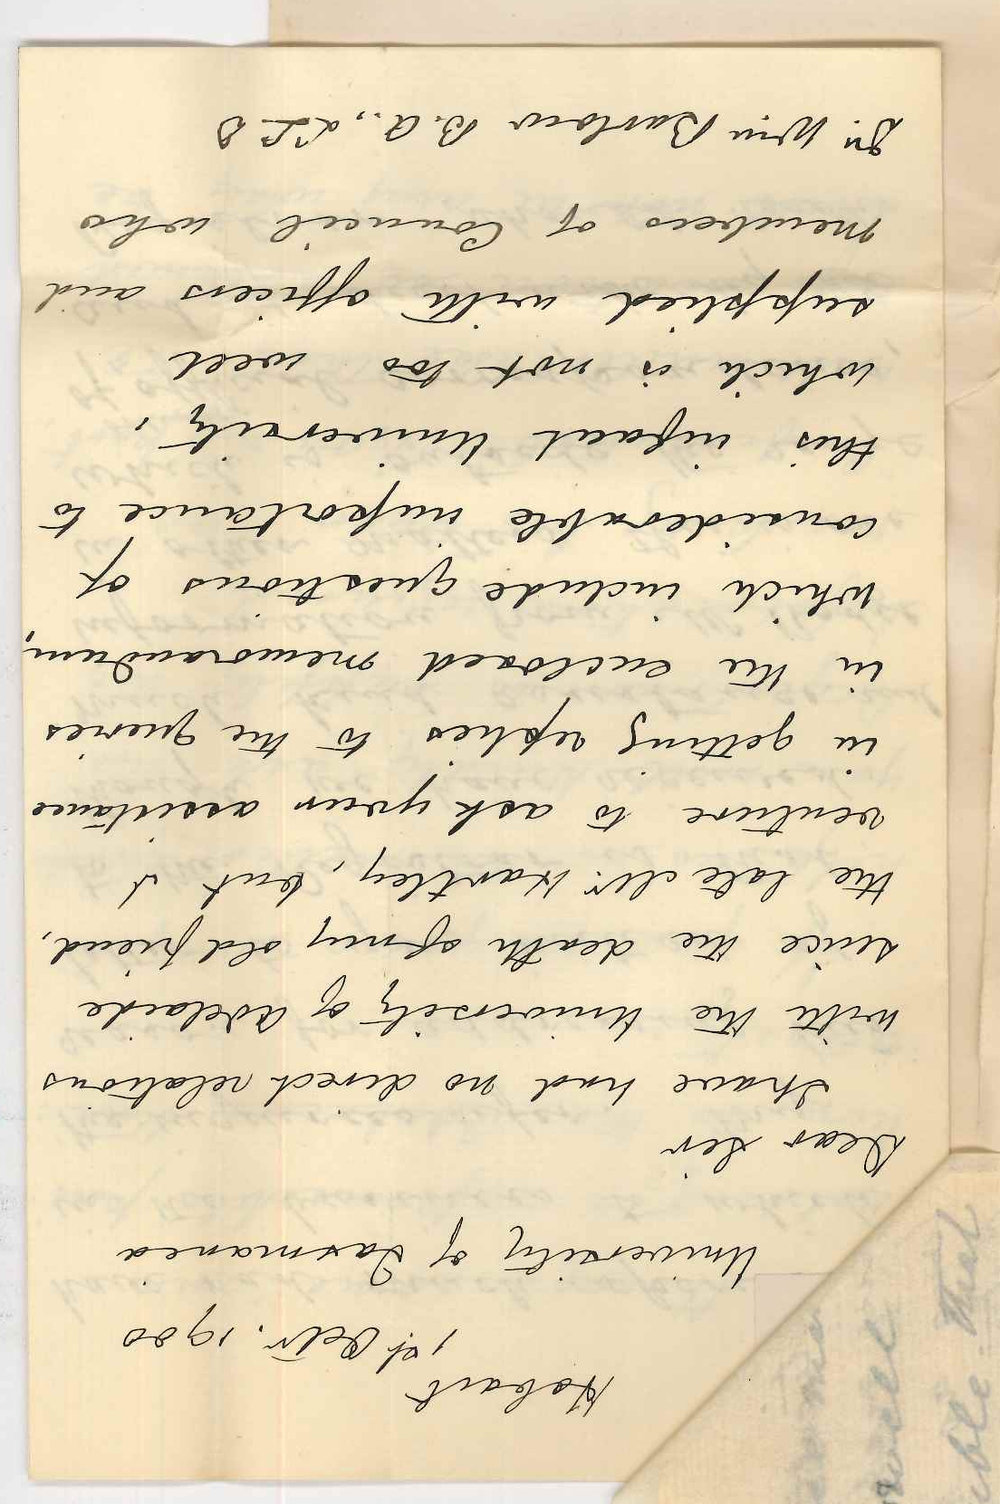 Hobart
1st Octr. 1900
University of Tasmania
Dear Sir
I have had no direct relations
with the University of Adelaide
since the death of my old friend,
the late Mr. Hartley, but I
venture to ask your assistance
in getting replies to the queries
in the enclosed memorandum,
which include questions of
considerable importance to
this infant University,
which is not too well
supplied with officers and
members of Council who
Dr. Wm Barlow B.A., LL D
ble that